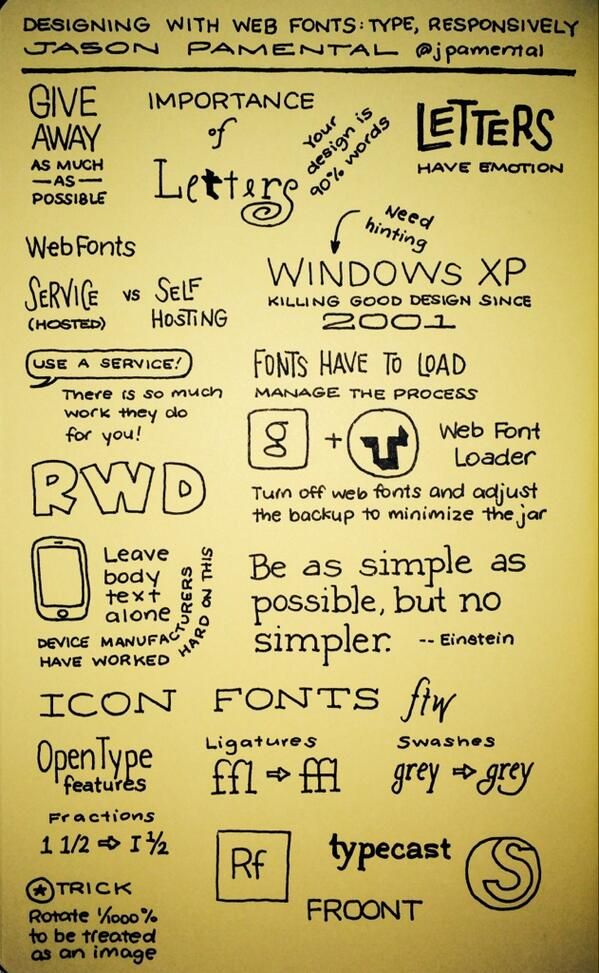 DESIGNING WITH WEB FONTS: TYPE, RESPONSIVELY
JASON PAMENTAL @jpamental
GIVE
AWAY
AS MUCH
—AS—
POSSIBLE
IMPORTANCE
of
Letters
Your
design is
90% words
LETTERS
HAVE EMOTION
Web Fonts
SERVICE vs SELF
(HOSTED) HOSTING
Need
hinting
WINDOWS XP
KILLING GOOD DESIGN SINCE
2001
USE A SERVICE!
There is so much
work they do
for you!
FONTS HAVE TO LOAD
MANAGE THE PROCESS
g + Web Font
Loader
Turn off web fonts and adjust
the backup to minimize the jar
RWD
Leave
body
text
alone
DEVICE MANUFACTURERS
HAVE WORKED HARD ON THIS
Be as simple as
possible, but no
simpler. -- Einstein
ICON FONTS ftw
OpenType
features
Ligatures
ffl ⇨ ffl
Swashes
grey ⇨ grey
Fractions
1 1/2 ⇨ 1 ½
TRICK
Rotate 1/1000 %
to be treated
as an image
Rf
typecast
S
FROONT